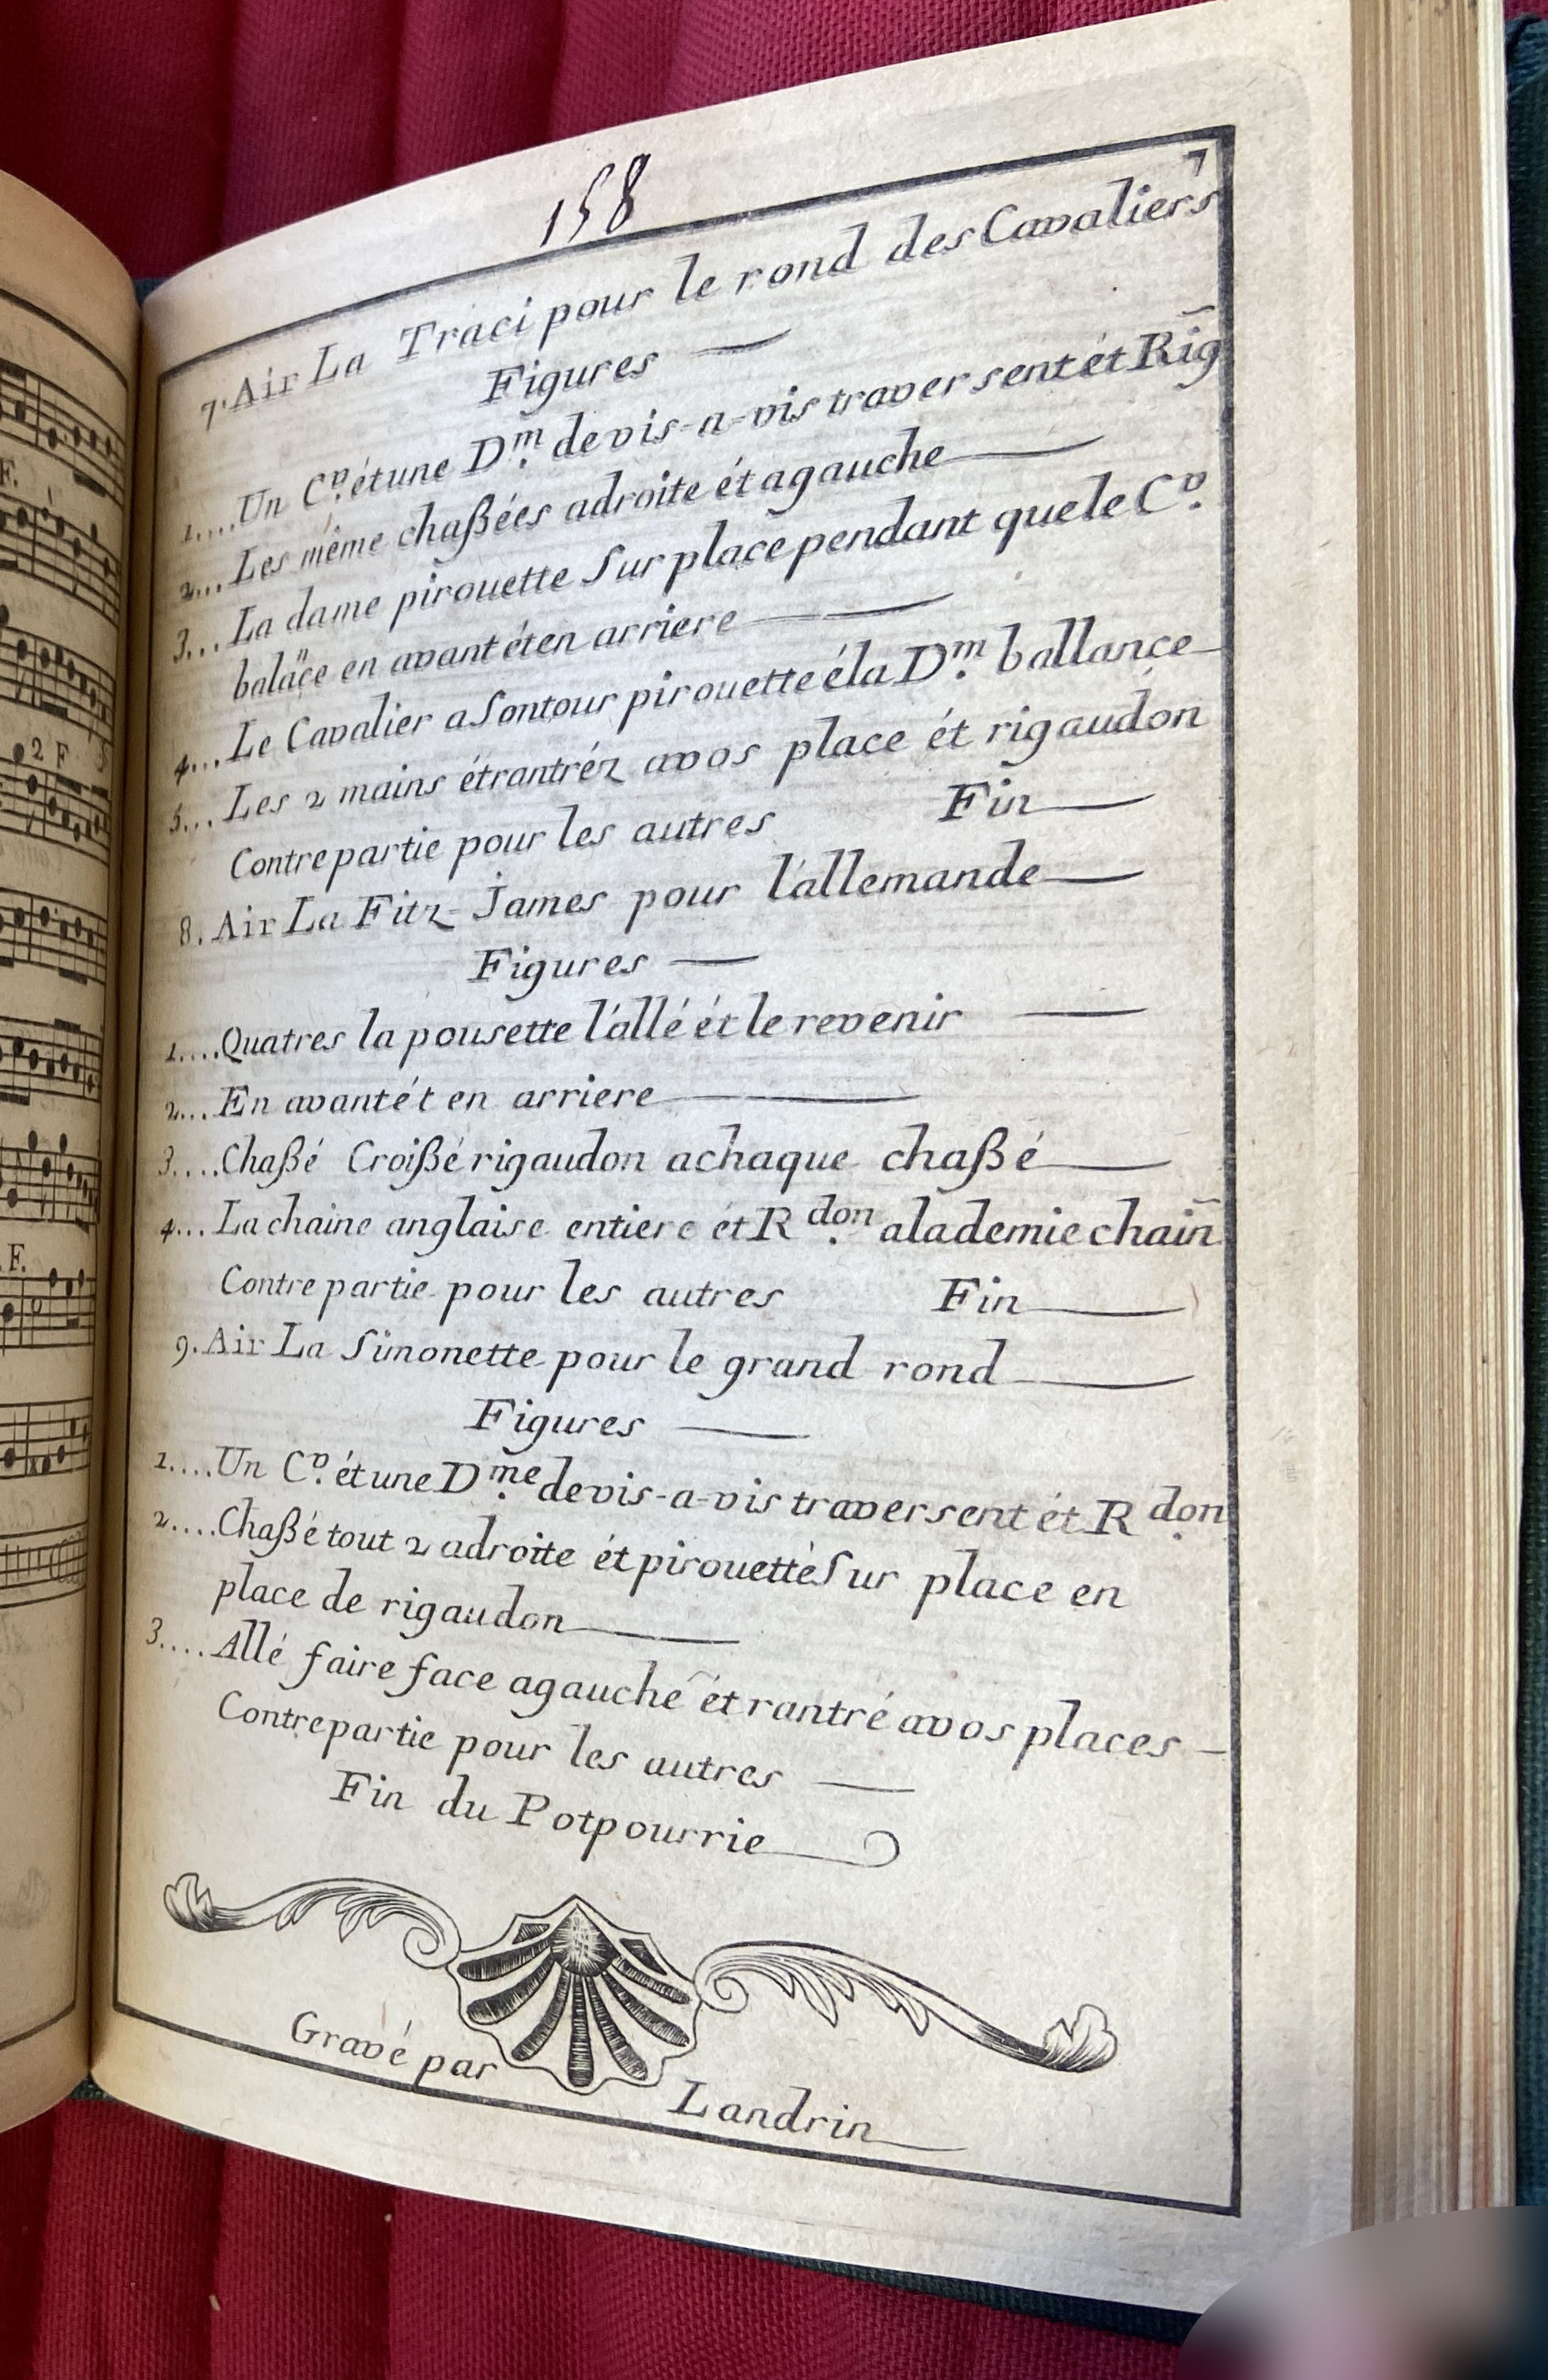 158
7
7. Air La Traci pour le rond des Cavaliers
Figures —
1.... Un C.^v étune D.^m devis-a-vis traversent ét Rig̃
2... Les même chaßées adroite ét agauche —
3... La dame pirouette Sur place pendant quele C.^v
baläce en avant éten arriere —
4... Le Cavalier a Sontour pirouette éla D.^m ballance —
5... Les 2 mains étrantréz avos place ét rigaudon
Contrepartie pour les autres Fin —
8. Air La Fitz-James pour l'allemande —
Figures —
1.... Quatres la pousette l'allé ét le revenir —
2... En avant ét en arriere —
3.... Chaßé Croißé rigaudon achaque chaßé —
4... La chaine anglaise entiere ét R.^don alademie chaiñ
Contrepartie pour les autres Fin —
9. Air La Simonette pour le grand rond —
Figures —
1.... Un C.^v étune D.^me devis-a-vis traversent ét R.^don
2.... Chaßé tout 2 adroite ét pirouetté Sur place en
place de rigaudon —
3.... Allé faire face agauche ét rantré avos places —
Contrepartie pour les autres —
Fin du Potpourrie
Gravé par Landrin
F.
2 F
F.